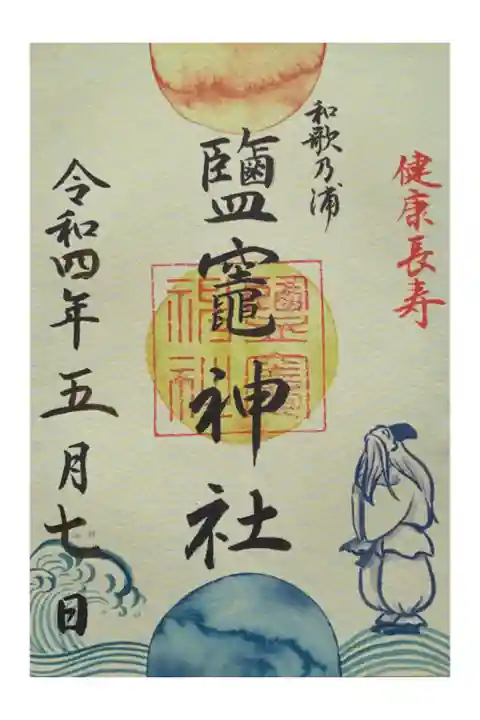 健康長寿
和歌乃浦
鹽竈神社
鹽竈神社
令和四年五月七日